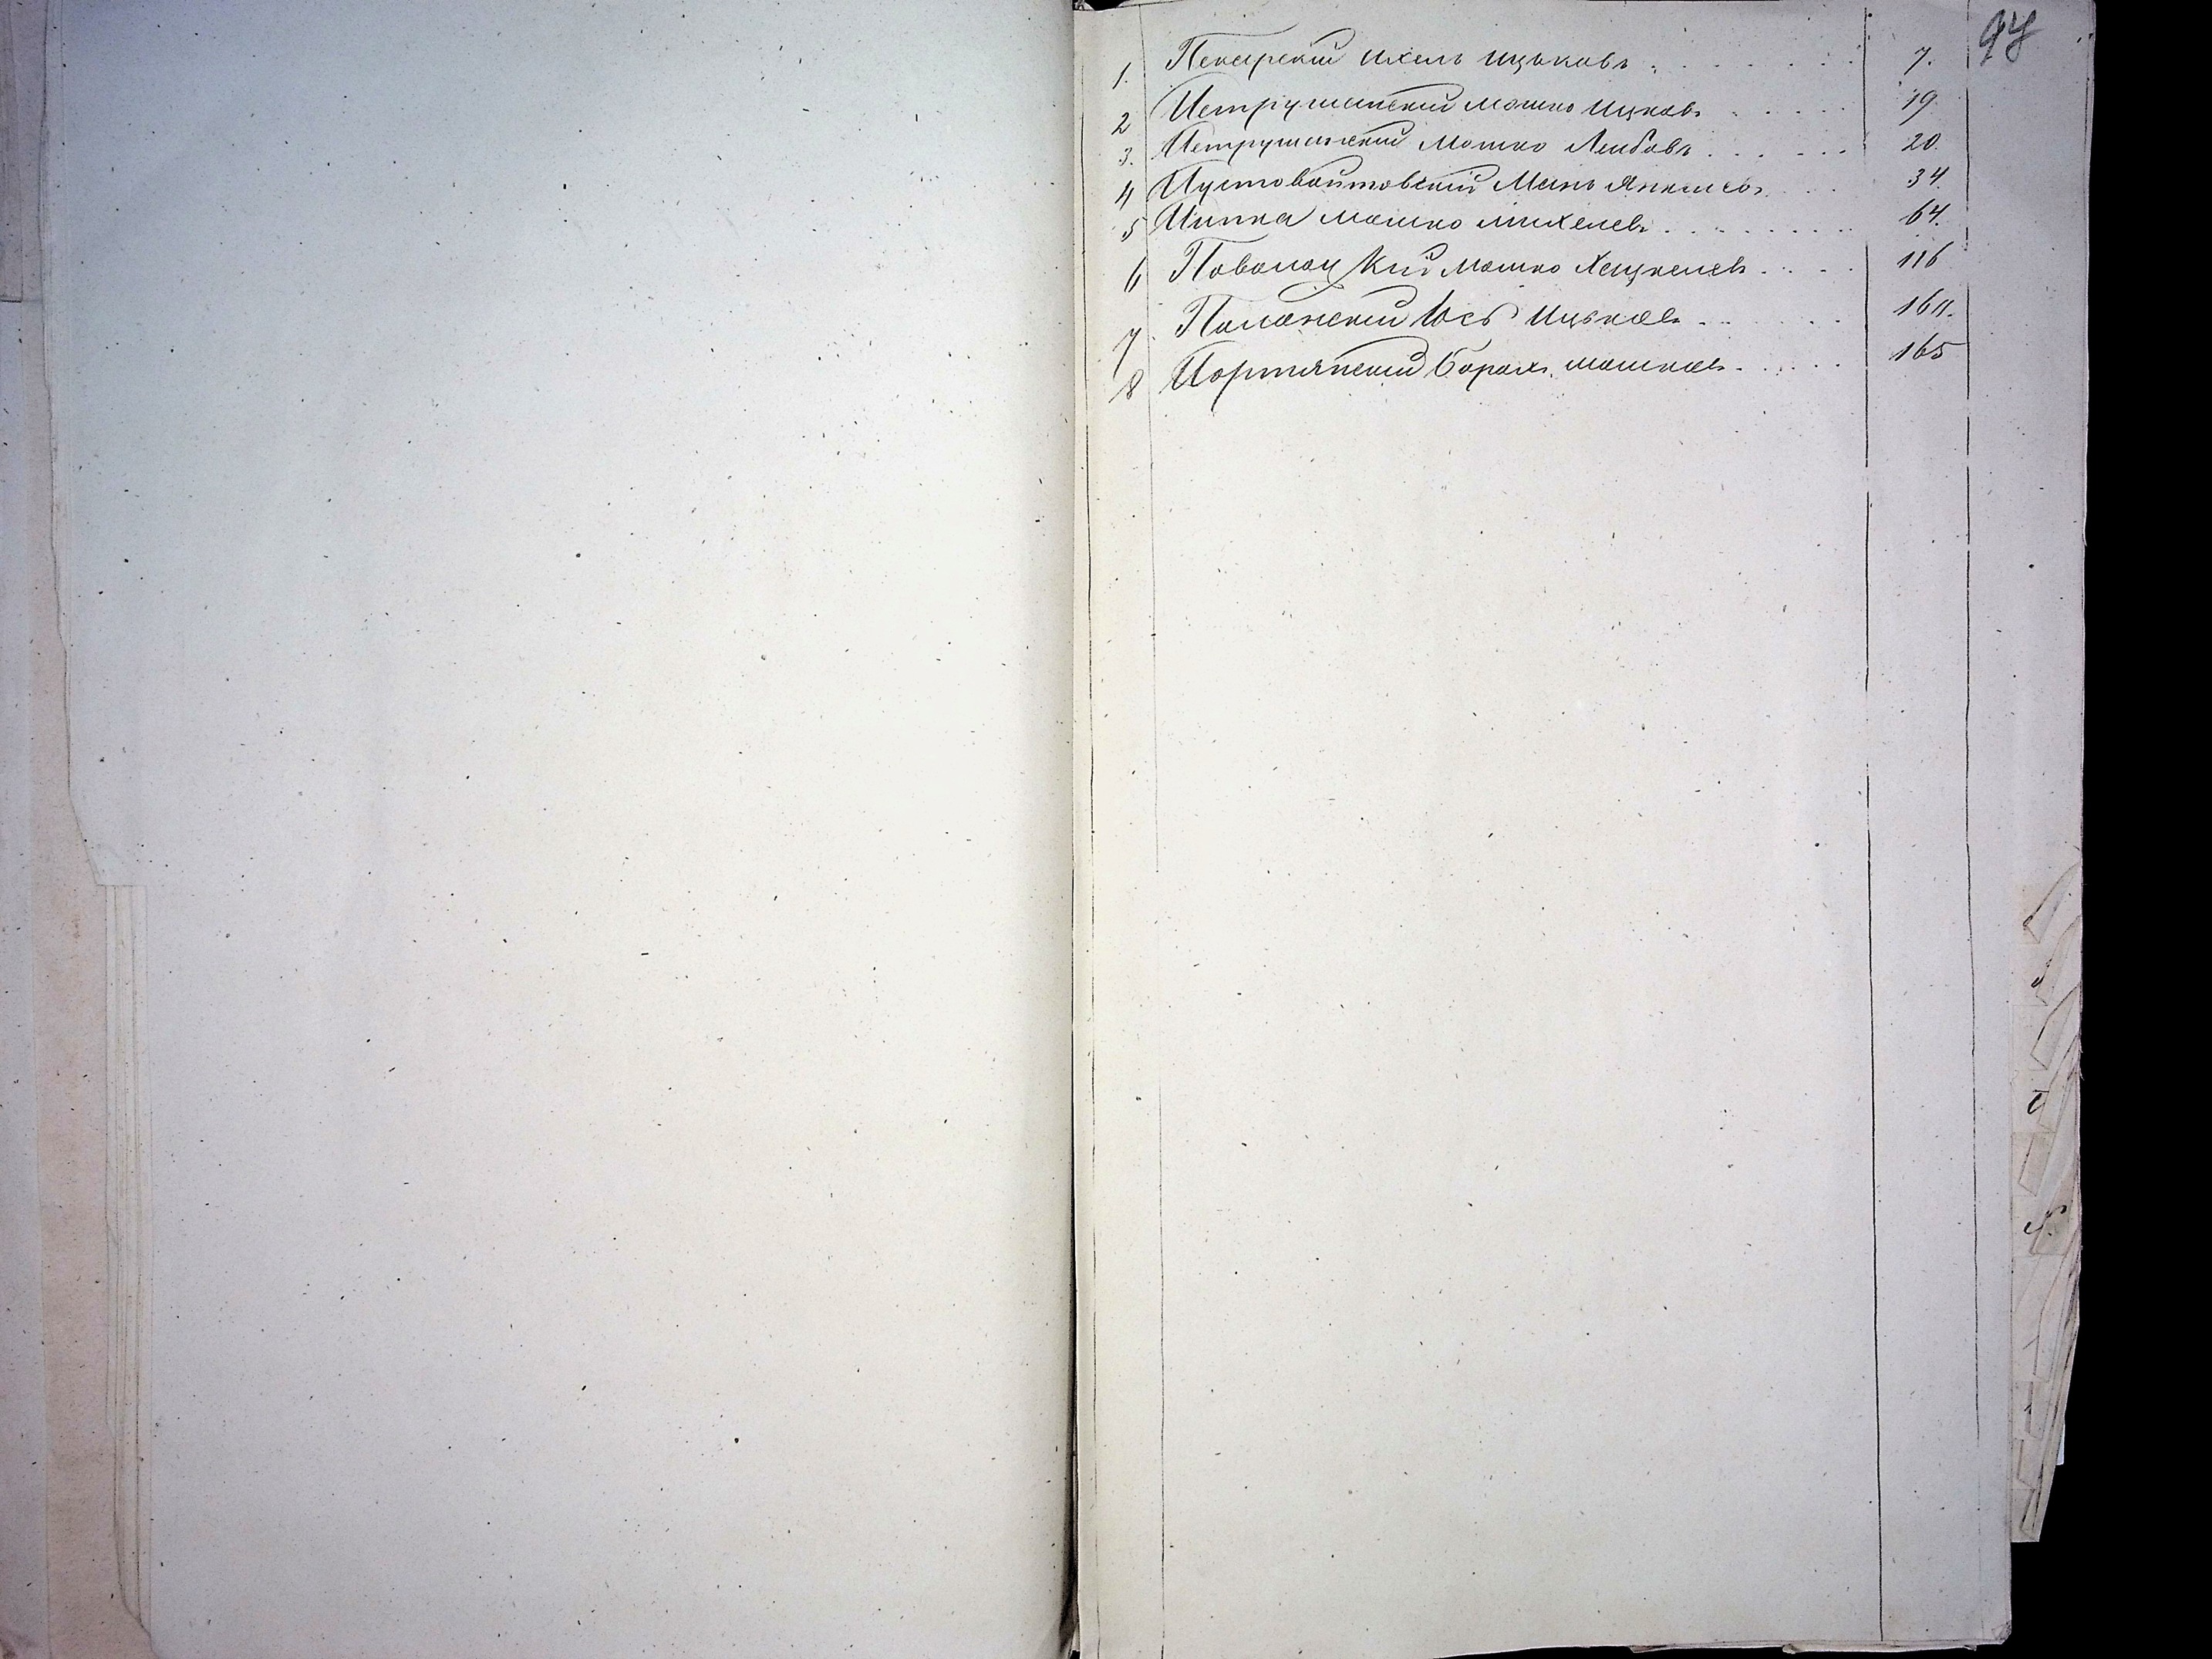 97
1. Пекарскій Ихель Ицьковъ . . . . . . 7.
2 Петрушанскій Мошко Ицковъ . . . . 19.
3. Петрушанскій Мошко Лейбовъ . . . . . . 20.
4 Пустовойтовскій Янкелевъ . . . 34.
5 Мошко Михелевъ . . . . . . . . 64.
6 Поволоцкій Мошко Хецкелевъ . . . . 116
7. Полонскій Іось Ицьковъ . . . . . 160.
8 Портянскій Борохъ Мошковъ . . . . . 165